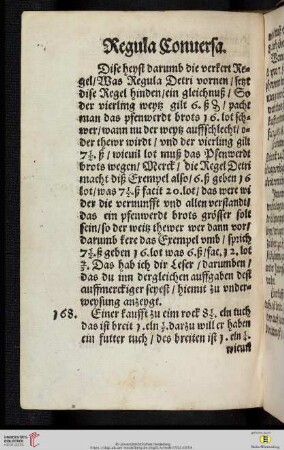 Regula Conuersa.
Dise heyst darumb die verkert Re-
gel/Was Regula Detri vornen/setzt
dise Regel hinden/ein gleichnuß/So
der vierling weytz gilt 6.ß /pacht
man das pfenwerdt brots 16.lot sch-
wer/wann nu der weytz auffschlecht/o-
der thewr wirdt/vnd der vierling gilt
7½.ß/wieuil lot muß das Pfenwerdt
brots wegen/Merck/die Regel Detri
macht diß Exempel also/6.ß geben 16
lot/was 7½.ß facit 20.lot/das wert wi
der die vernunfft vnd allen verstandt/
das ein pfenwerdt brots grösser solt
sein/so der weitz thewer wer dann vor/
darumb kere das Exempel vmb/sprich
7½.ß geben 16.lot was 6.ß/fac,12.lot
Das hab ich dir Leser/darumben/
das du inn dergleichen auffgaben dest
auffmerckiger seyest/hiemit zu vnder-
weysung anzeygt.
168. Einer kaufft zu eim rock 8½.eln tuch
das ist breit 1.eln darzu will er haben
ein futter tuch/des breiten ist 1.eln
wieuil